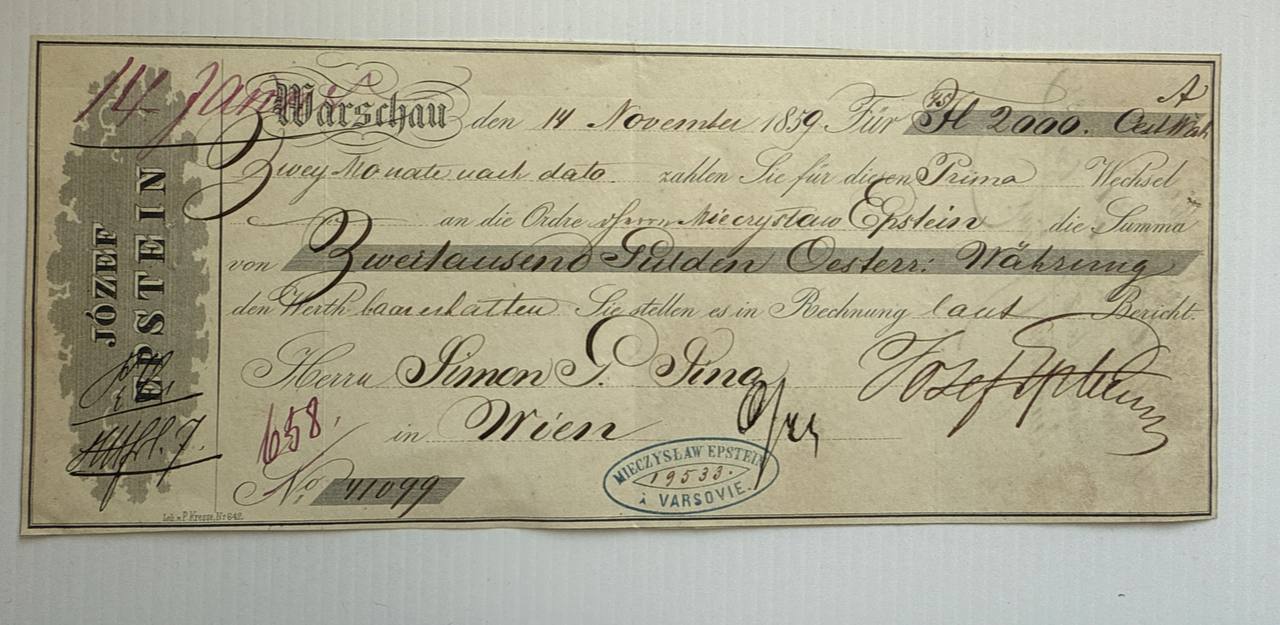 14 Jan
A
Warschau den 14 November 1859. Für Fl 2000. Oest Wäh
Zwey Monate nach dato zahlen Sie für diesen Prima Wechsel
an die Ordre Herrn Mieczysław Epstein die Summa
von Zweitausend Gulden Oesterr: Währung
den Werth baar erhalten Sie stellen es in Rechnung laut Bericht.
Herrn Simon G. Sina
Josef Epstein
in Wien
658.
No. 41099
MIECZYSŁAW EPSTEIN
19533.
à VARSOVIE.
JÓZEF
EPSTEIN